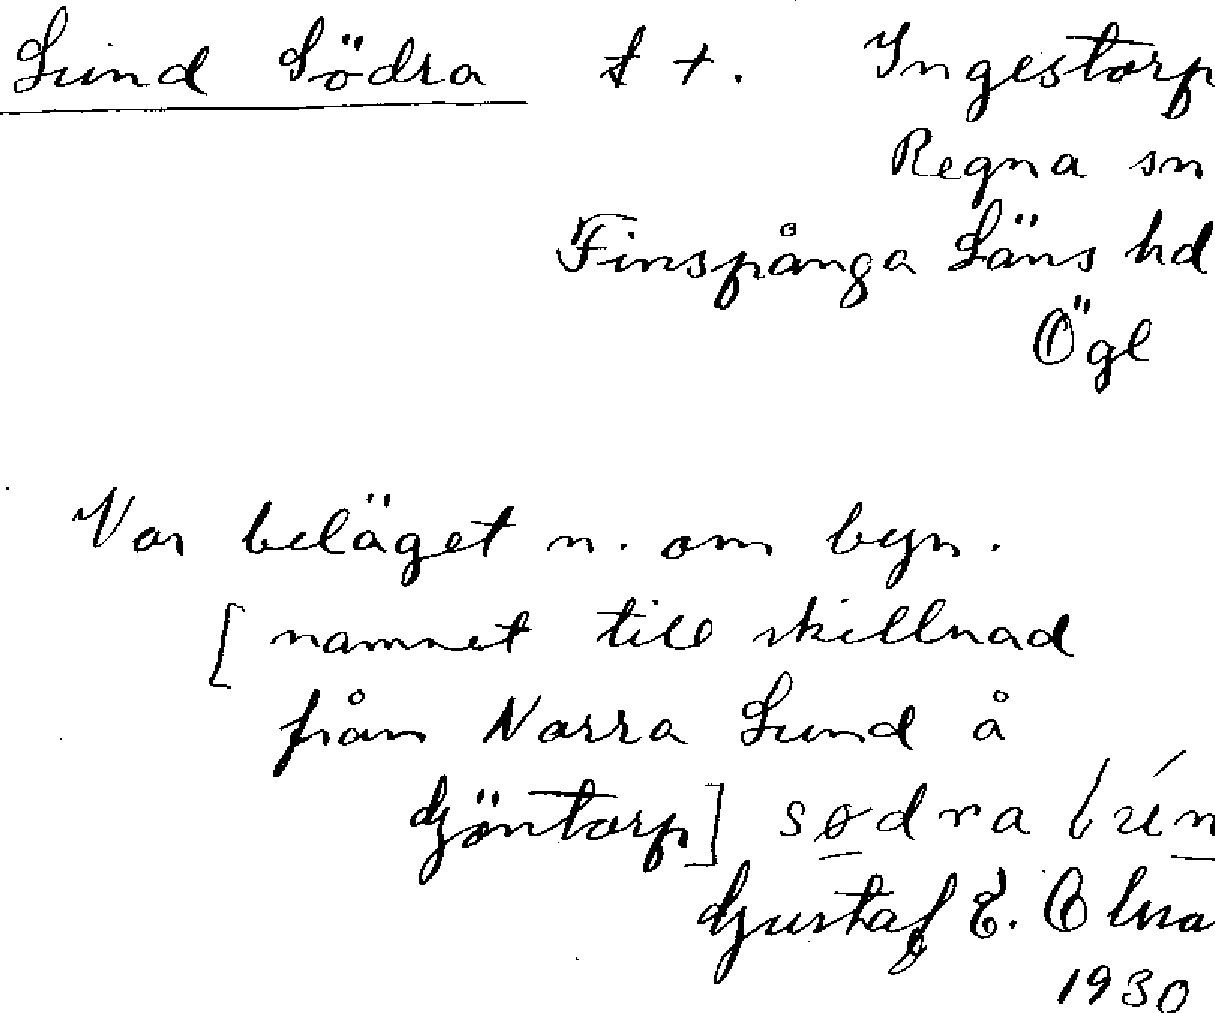 Lund Södra t +. Ingestorp
Regna sn
Finspånga Läns hd
Ögl
Var beläget n. om byn.
[namnet till skillnad
från Norra Lund å
Göntorp] sødra
Gustaf E.
1930